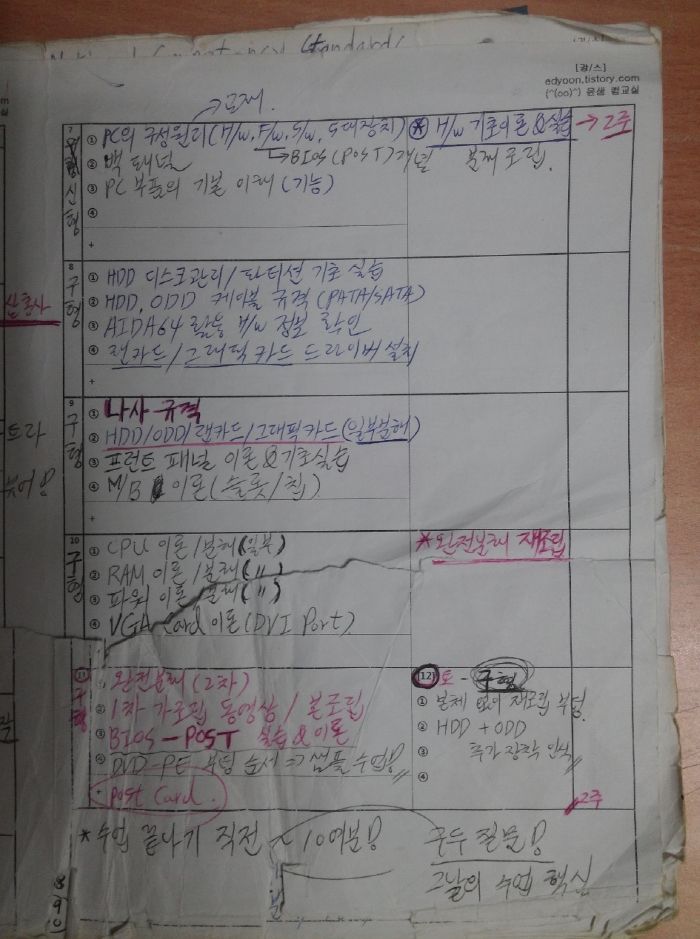 National Competency Standards
[컴/스]
edyoon.tistory.com
(^(oo)^) 윤샘 컴교실
→교재.
7 신형
① PC의 구성원리(H/W, F/W, S/W, 5대장치) ※ H/W 기초이론&실습 → 2주
② 백패널 →BIOS(POST)개념 본체 조립.
③ PC 부품의 기본 이해 (기능)
④
+
8 구형
① HDD 디스크관리/파티션 기초 실습
② HDD, ODD 케이블 규격(PATA/SATA)
③ AIDA64 활용 H/W 정보 확인
④ 랜카드/그래픽카드 드라이버 설치
+
9 구형
① 나사 규격
② HDD/ODD/랜카드/그래픽카드(일부분해)
③ 프런트 패널 이론&기초실습
④ M/B 이론(슬롯/칩)
+
10 구형
① CPU 이론/분해(일부) *완전분해 재조립
② RAM 이론/분해(〃)
③ 파워 이론/분해(〃)
④ VGA Card 이론(DVI Port)
11 구형
① 완전분해(2차)
② 1차 가조립 동영상/본조립
③ BIOS-POST 실습&이론
④ DVD-PE 부팅 순서 => 샘플 수업!
+ Post Card.
[12] 토-구형
① 본체 없이 재조립 부팅.
② HDD + ODD
③ 추가 장착 인식
④
2주
*수업 끝나기 직전 ~10여분! 모두 질문!
그날의 수업 핵심
분
8
9
10